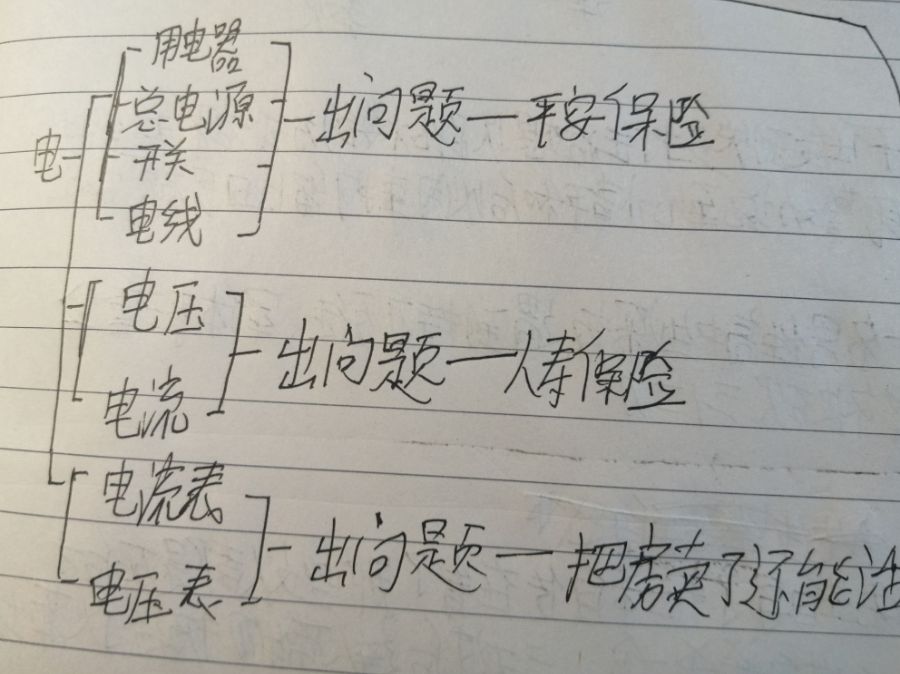 用电器
总电源
电
开关
电线
出问题 — 平安保险
电压
电流
出问题 — 人寿保险
电流表
电压表
出问题 — 把房卖了还能活